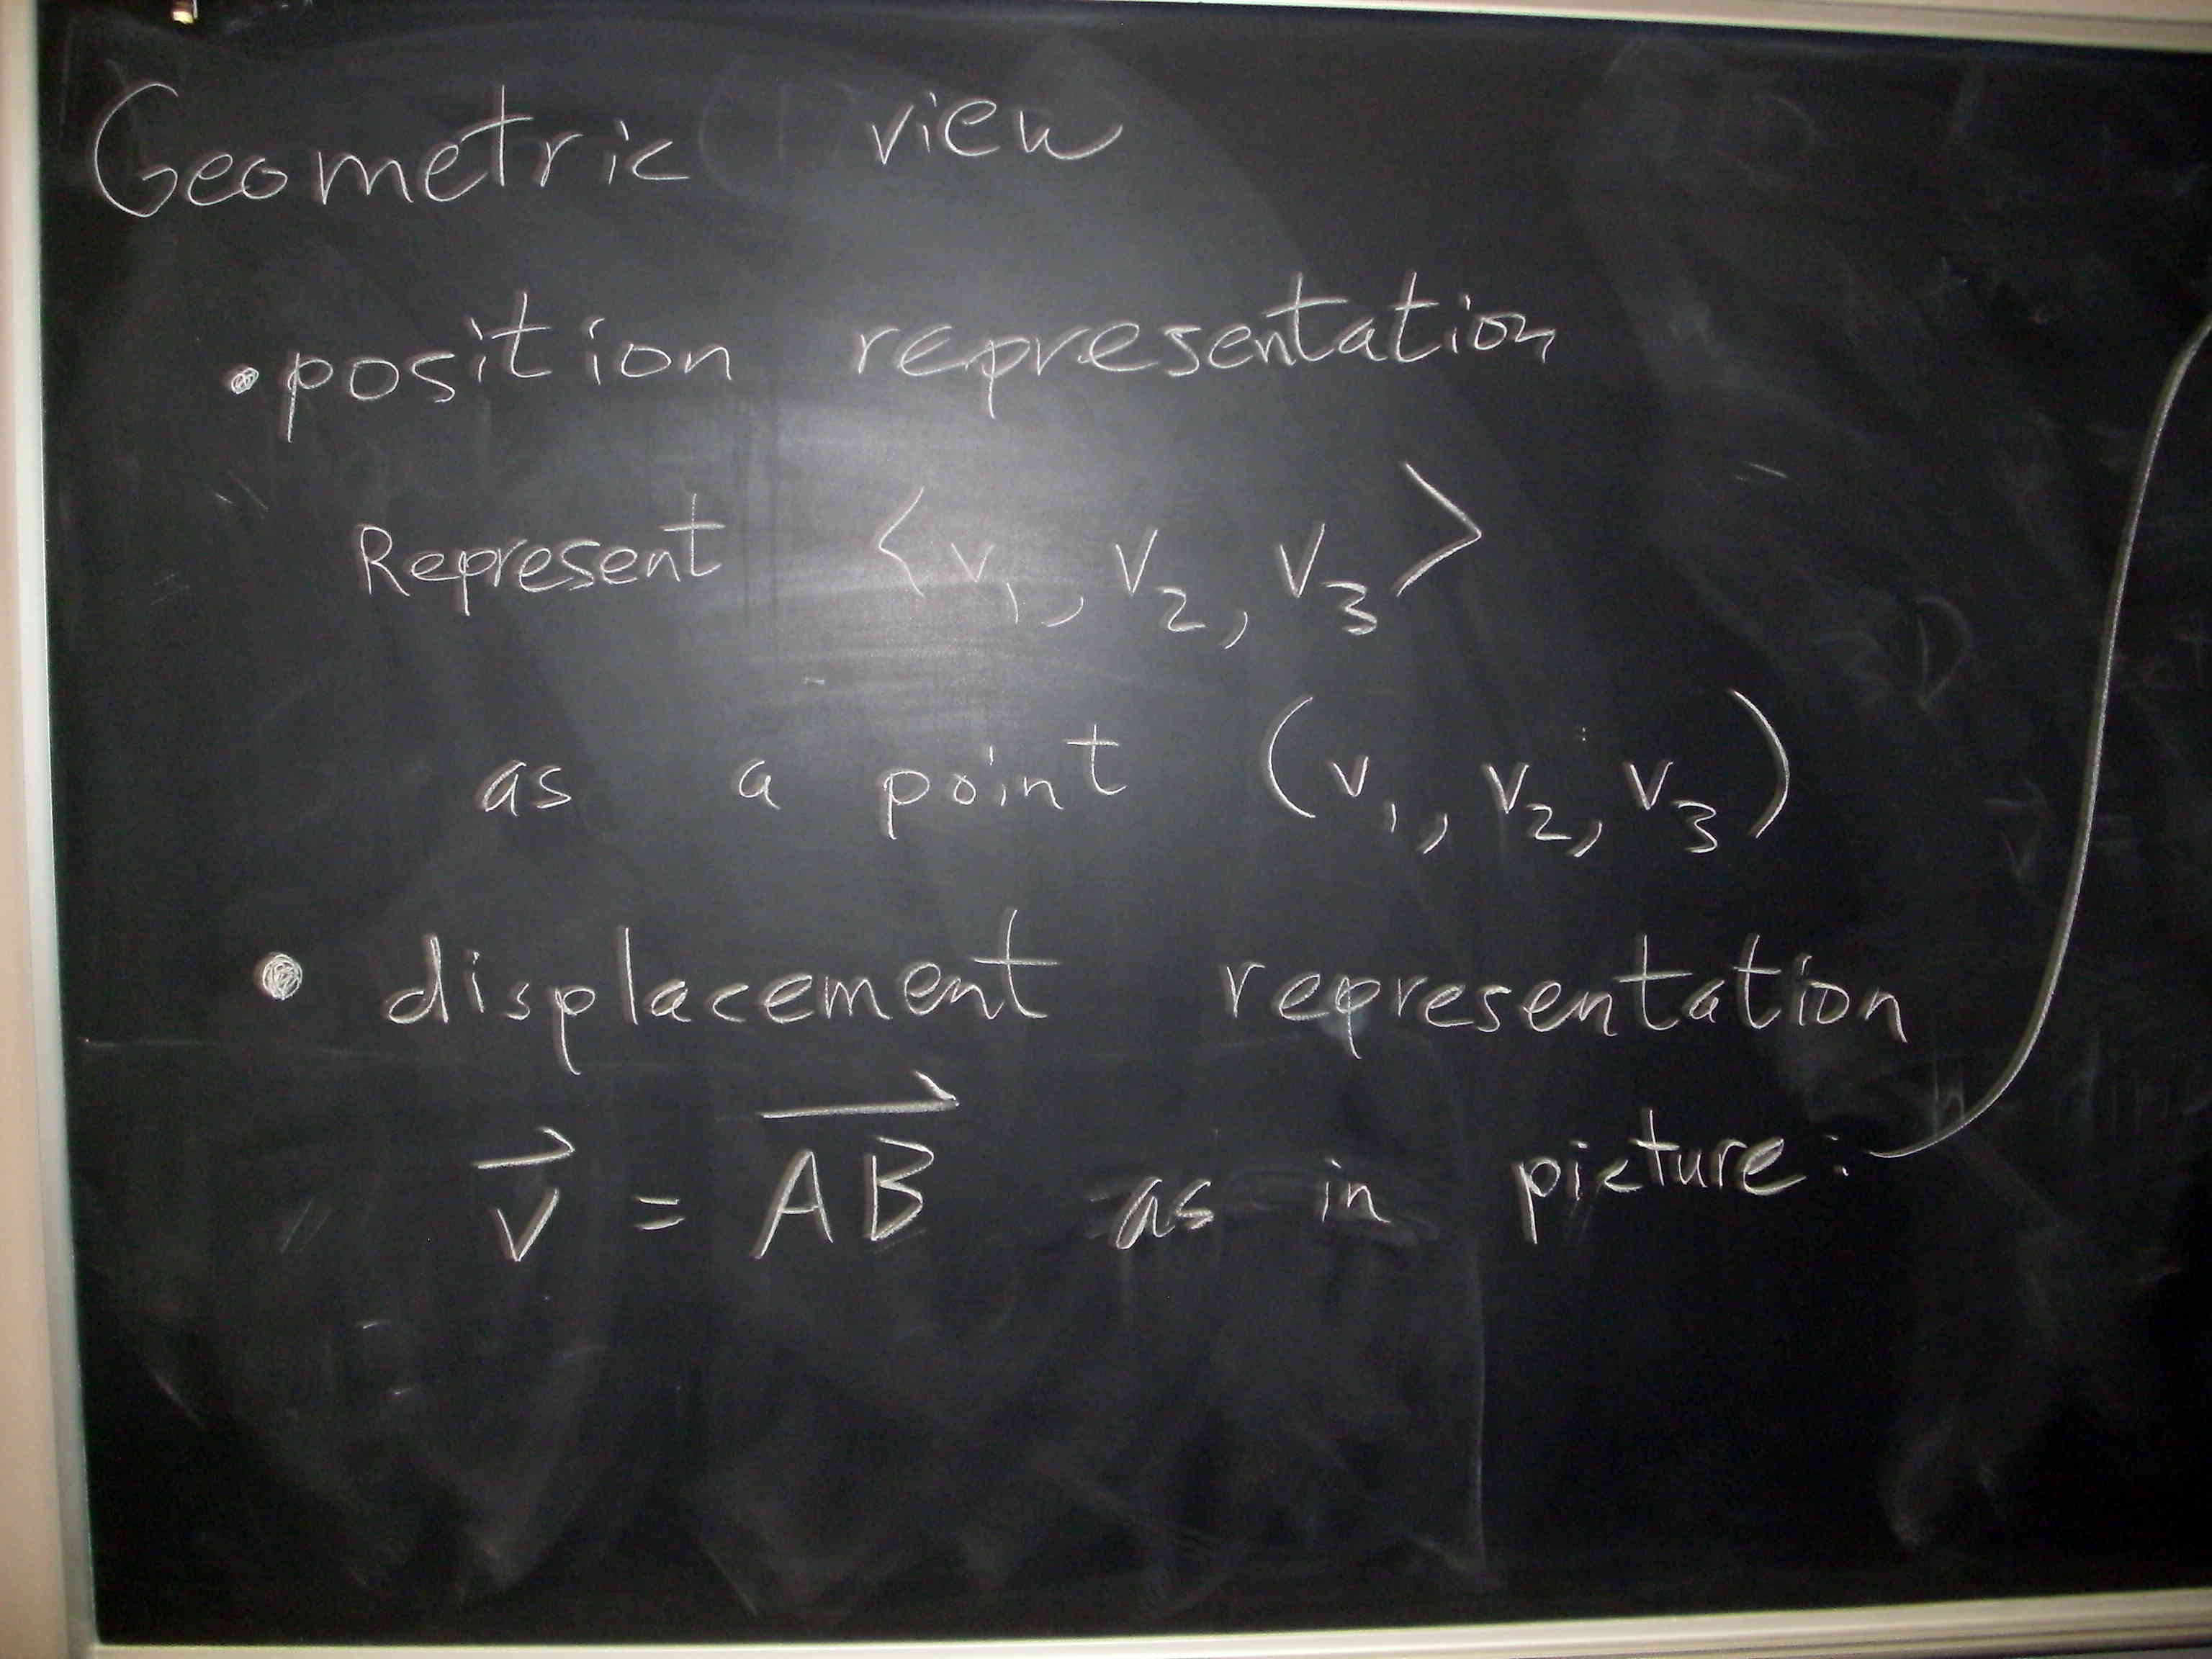 Geometric view
• position representation
Represent <v₁, v₂, v₃>
as a point (v₁, v₂, v₃)
• displacement representation
v⃗ = A⃗B⃗ as in picture: